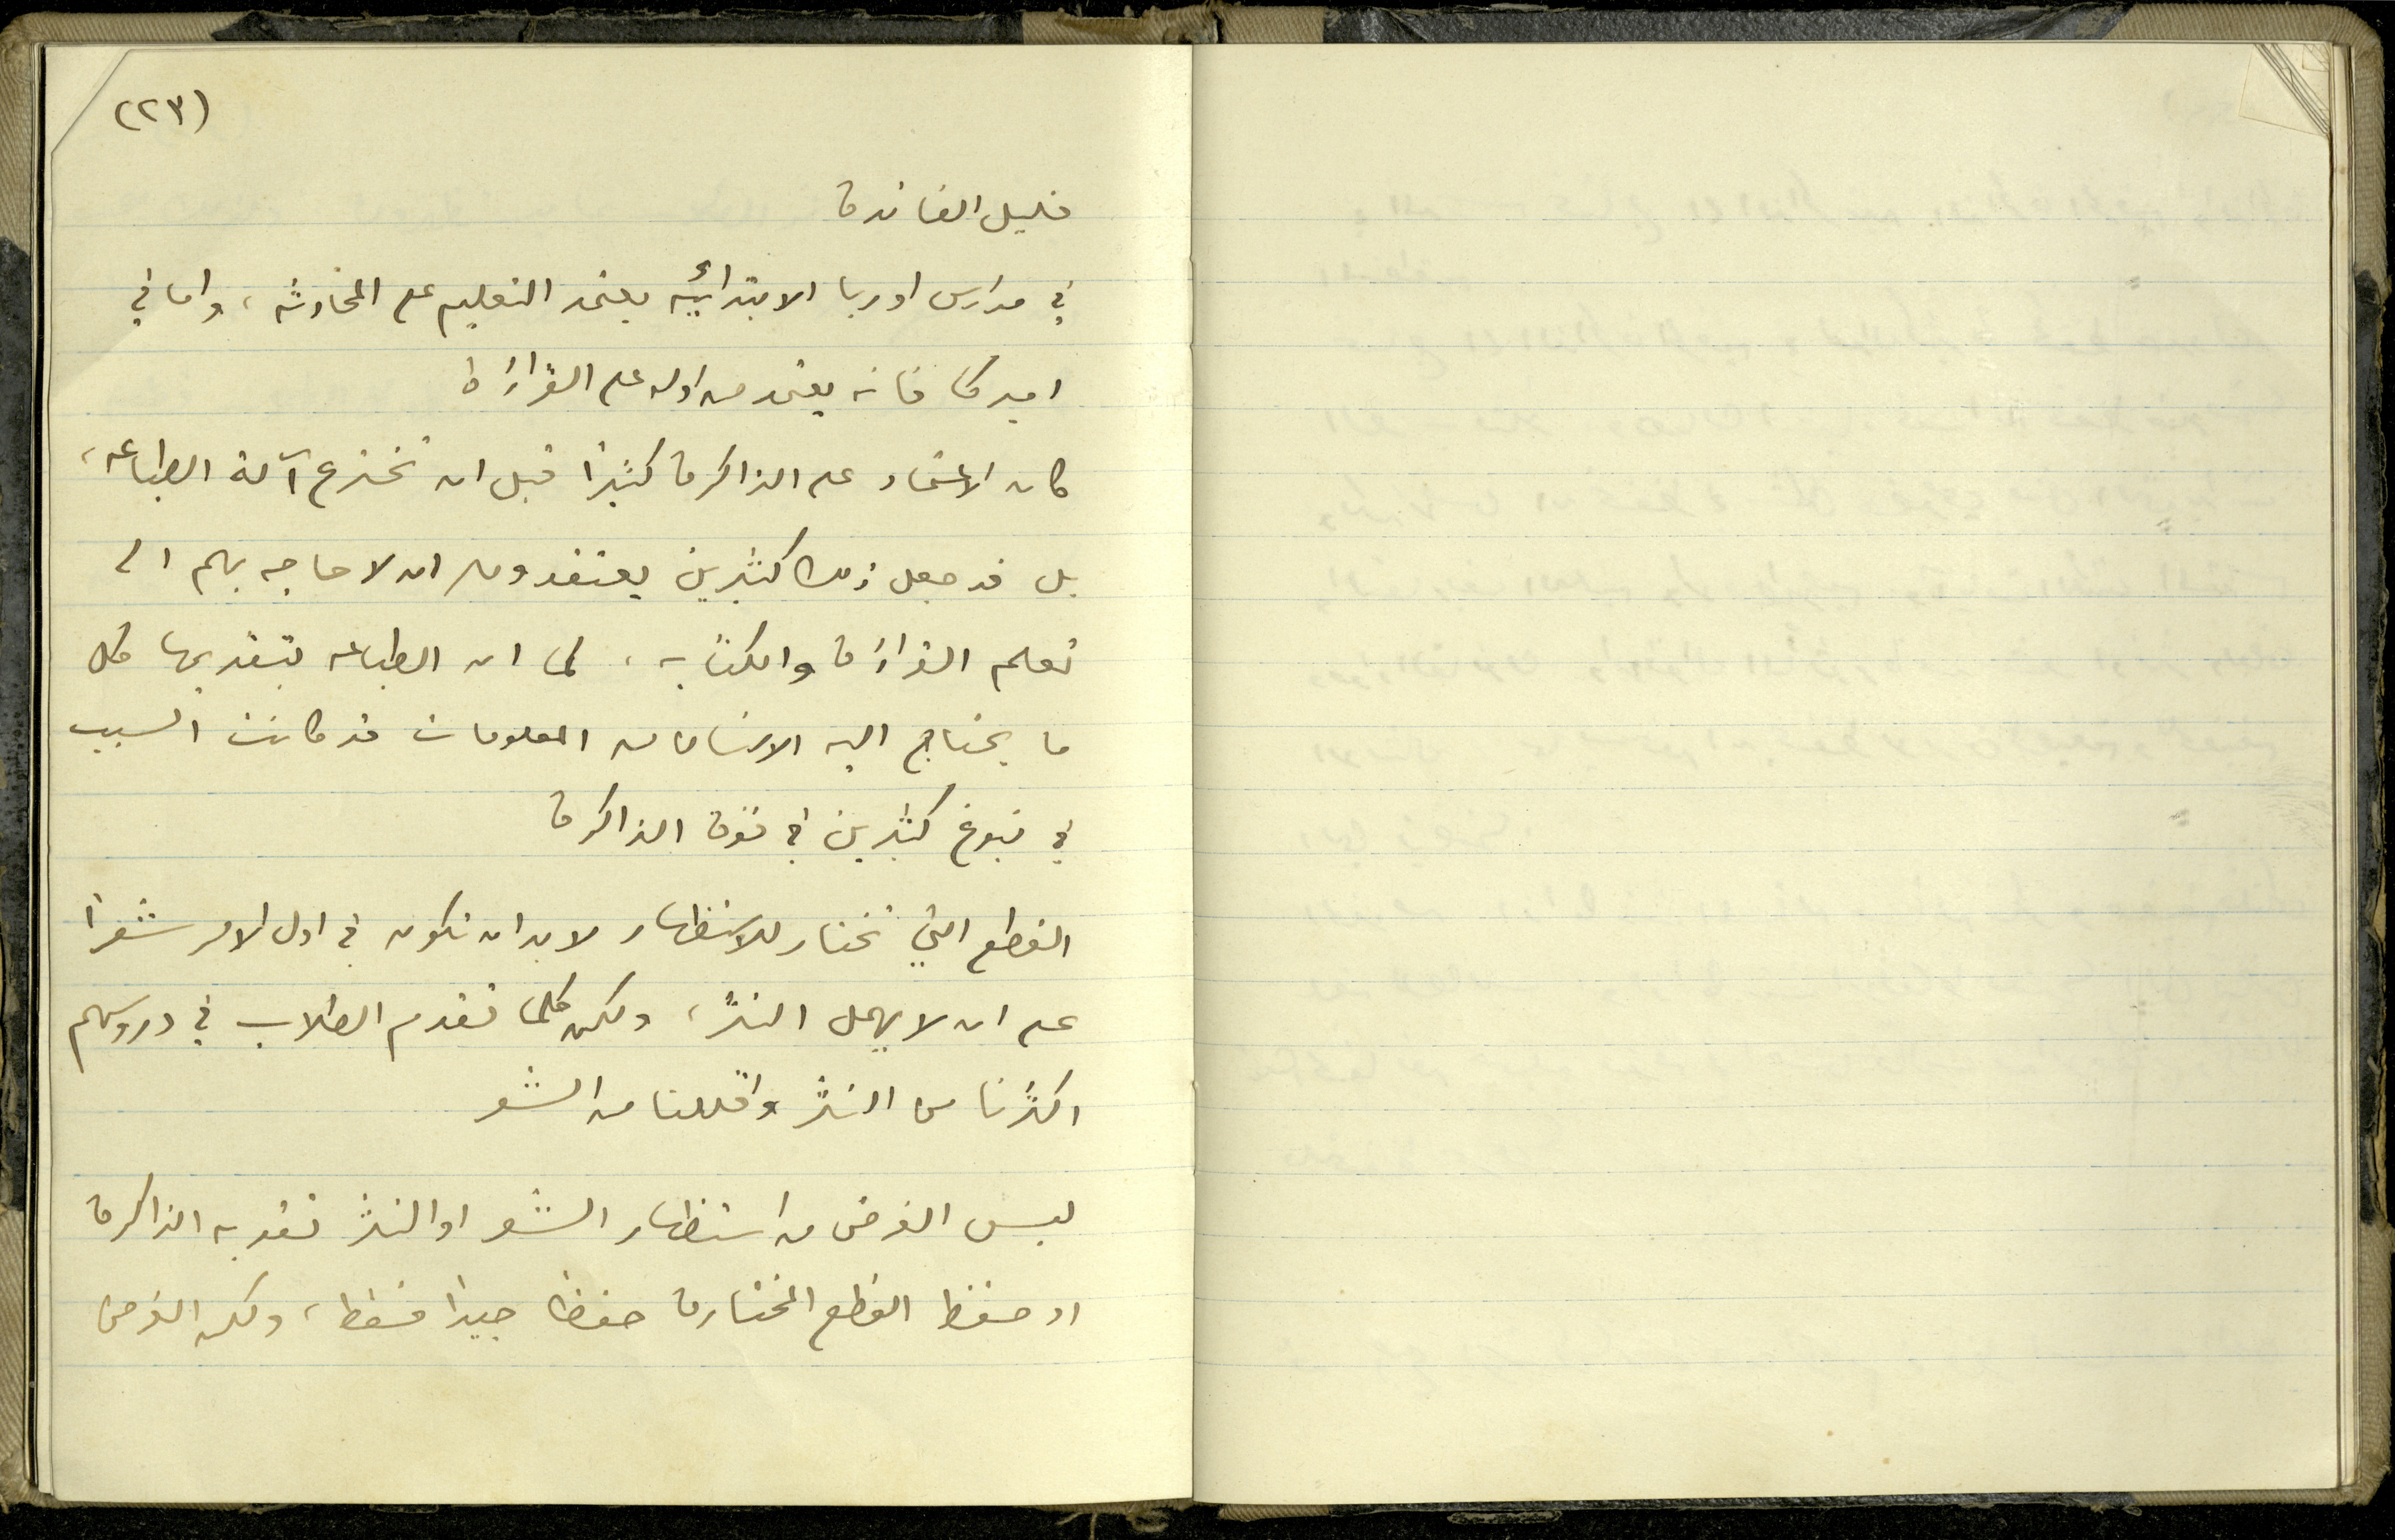 (٢٣)
قليل الفائدة
في مدارس اوربا الابتدائيه يعتمد التعليم على المحادثه، واما في
اميركا فانه يعتمد من اوله على القراءة
كان الاعتماد على الذاكرة كثيراً قبل ان تخترع آلة الطباعه،
بل قد جعل ذلك كثيرين يعتقدون ان لا حاجه بهم الى
تعلم القراءة والكتابه، كما ان الطباعه بتقديمها كل
ما يحتاج اليه الانسان من المعلومات قد كانت السبب
في نبوغ كثيرين في قوة الذاكرة
القطع التي تختار للاستظهار لابد ان تكون في اول الامر شعراً
على ان لا يهمل النثر، ولكن كلما تقدم الطلاب في دروسهم
اكثرنا من النثر واقللنا من الشعر
ليس الغرض من استظهار الشعر او النثر تقويه الذاكرة
او حفظ القطع المختارة حفظاً جيداً فقط، ولكن الغرض